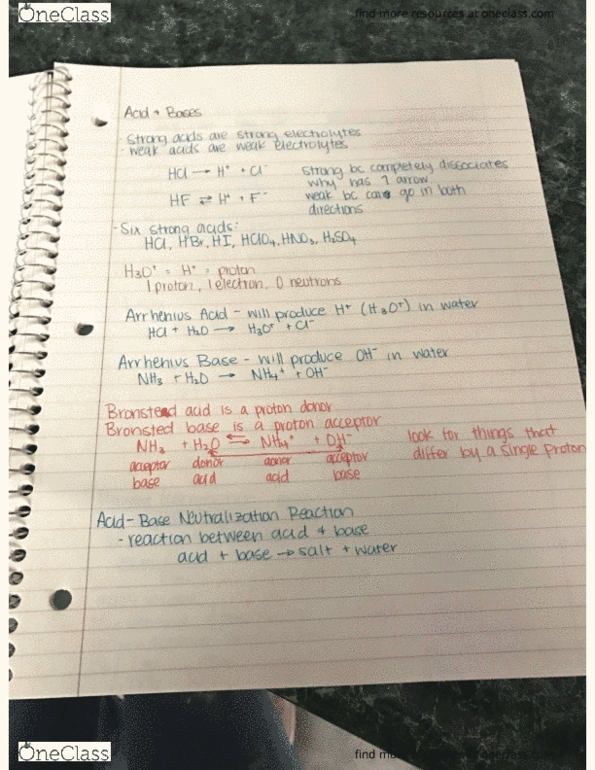 OneClass
find more resources at oneclass.com
Acid + Bases
- Strong acids are strong electrolytes
- weak acids are weak electrolytes
HCl → H⁺ + Cl⁻ strong bc completely dissociates
why has 1 arrow
HF ⇌ H⁺ + F⁻ weak bc can go in both
directions
- Six strong acids:
HCl, HBr, HI, HClO₄, HNO₃, H₂SO₄
H₃O⁺ = H⁺ = proton
1 proton, 1 electron, 0 neutrons
Arrhenius Acid - will produce H⁺ (H₃O⁺) in water
HCl + H₂O → H₃O⁺ + Cl⁻
Arrhenius Base - will produce OH⁻ in water
NH₃ + H₂O → NH₄⁺ + OH⁻
Bronstead acid is a proton donor
Bronsted base is a proton acceptor
NH₃ + H₂O ⇌ NH₄⁺ + OH⁻ look for things that
acceptor donor donor acceptor differ by a single proton
base acid acid base
Acid-Base Neutralization Reaction
- reaction between acid + base
acid + base → salt + water
OneClass
find